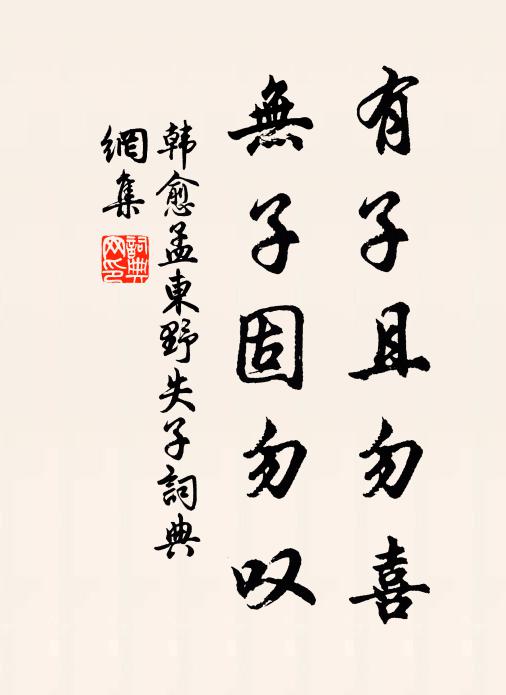 有子且勿喜
無子固勿叹
韩愈孟東野失子詞典
網集
詞典
网印